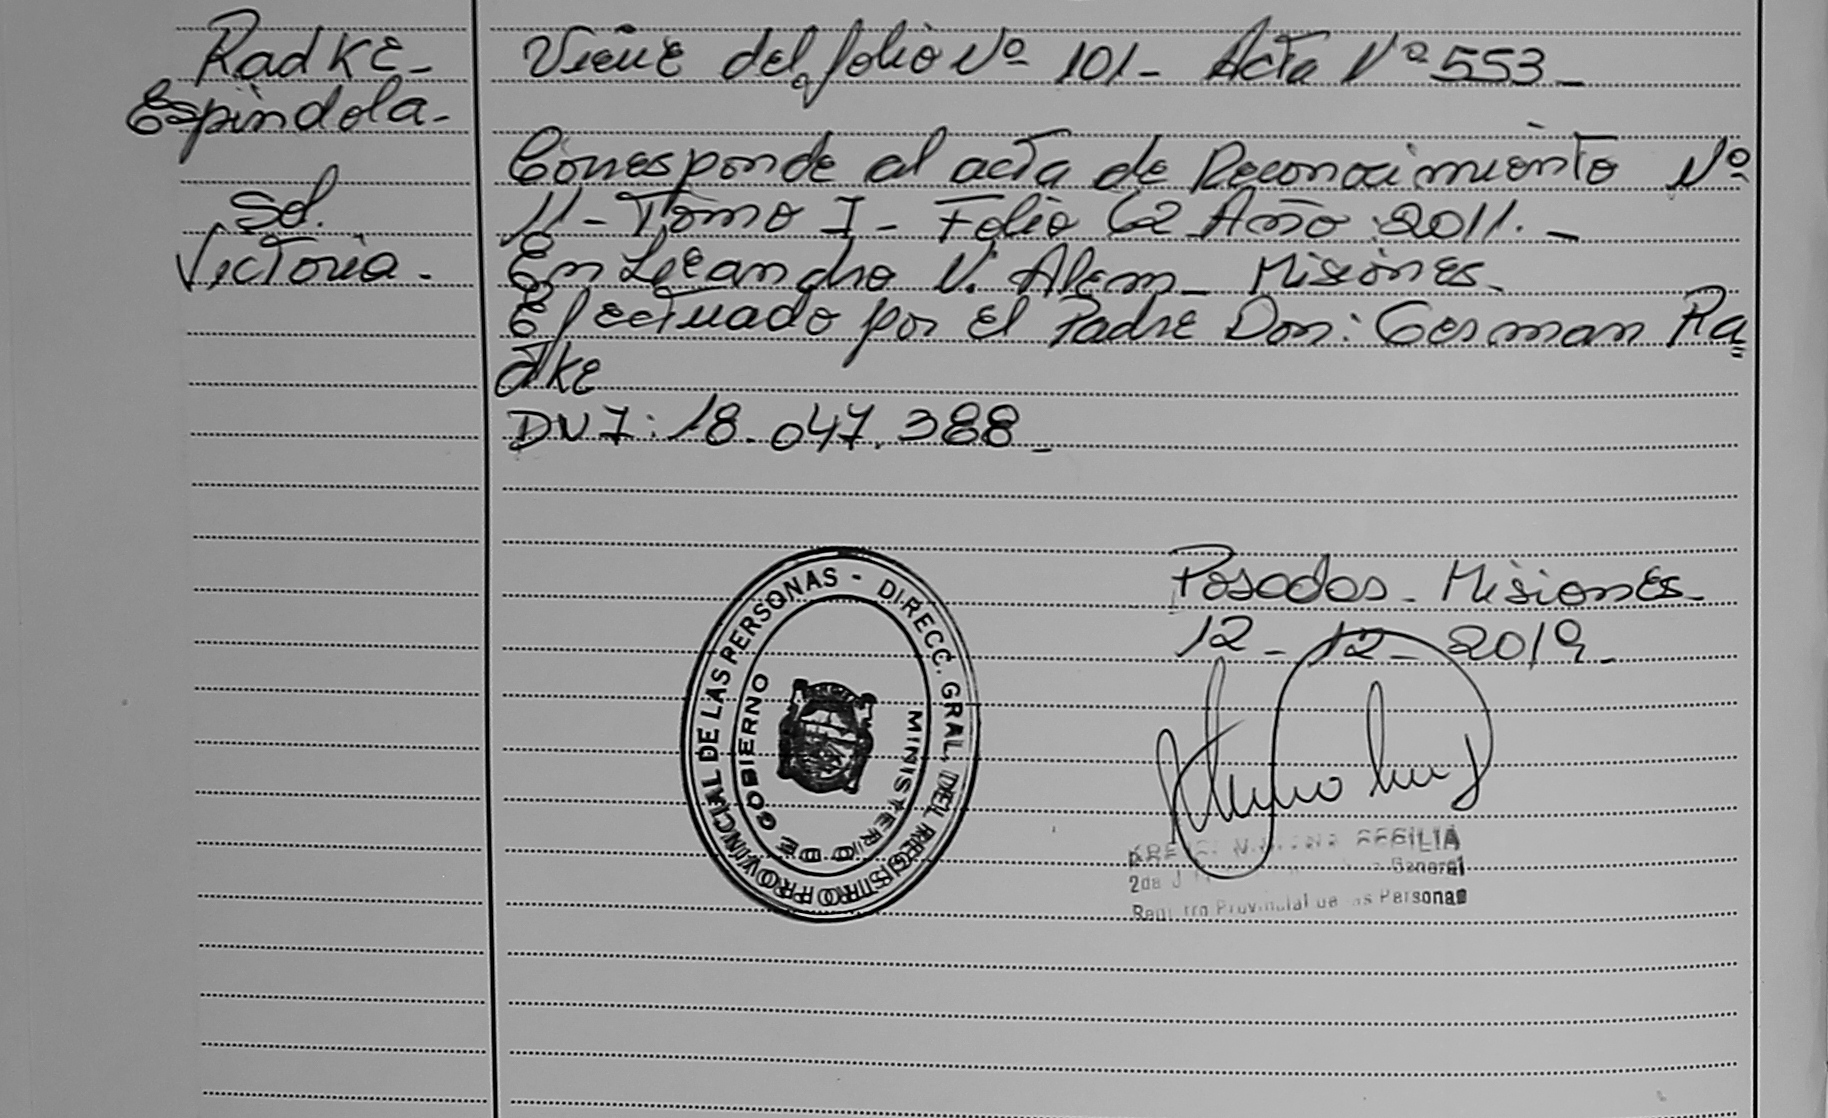 Radke
Espindola.
Sol
Victoria.
Viene del folio Nº 101 - Acta Nº 553 -
Corresponde al acta de Reconocimiento Nº
11 - Tomo I - Folio 62 Año 2011. -
En Leandro N. Alem - Misiones.
Efectuado por el Padre Don: German Ra
dke
DNI: 18.047.388 -
Posadas - Misiones -
12 - 12 - 2019 -
DIRECC. GRAL. DEL REGISTRO PROVINCIAL DE LAS PERSONAS -
MINISTERIO DE GOBIERNO
CECILIA
2da General
Registro Provincial de las Personas